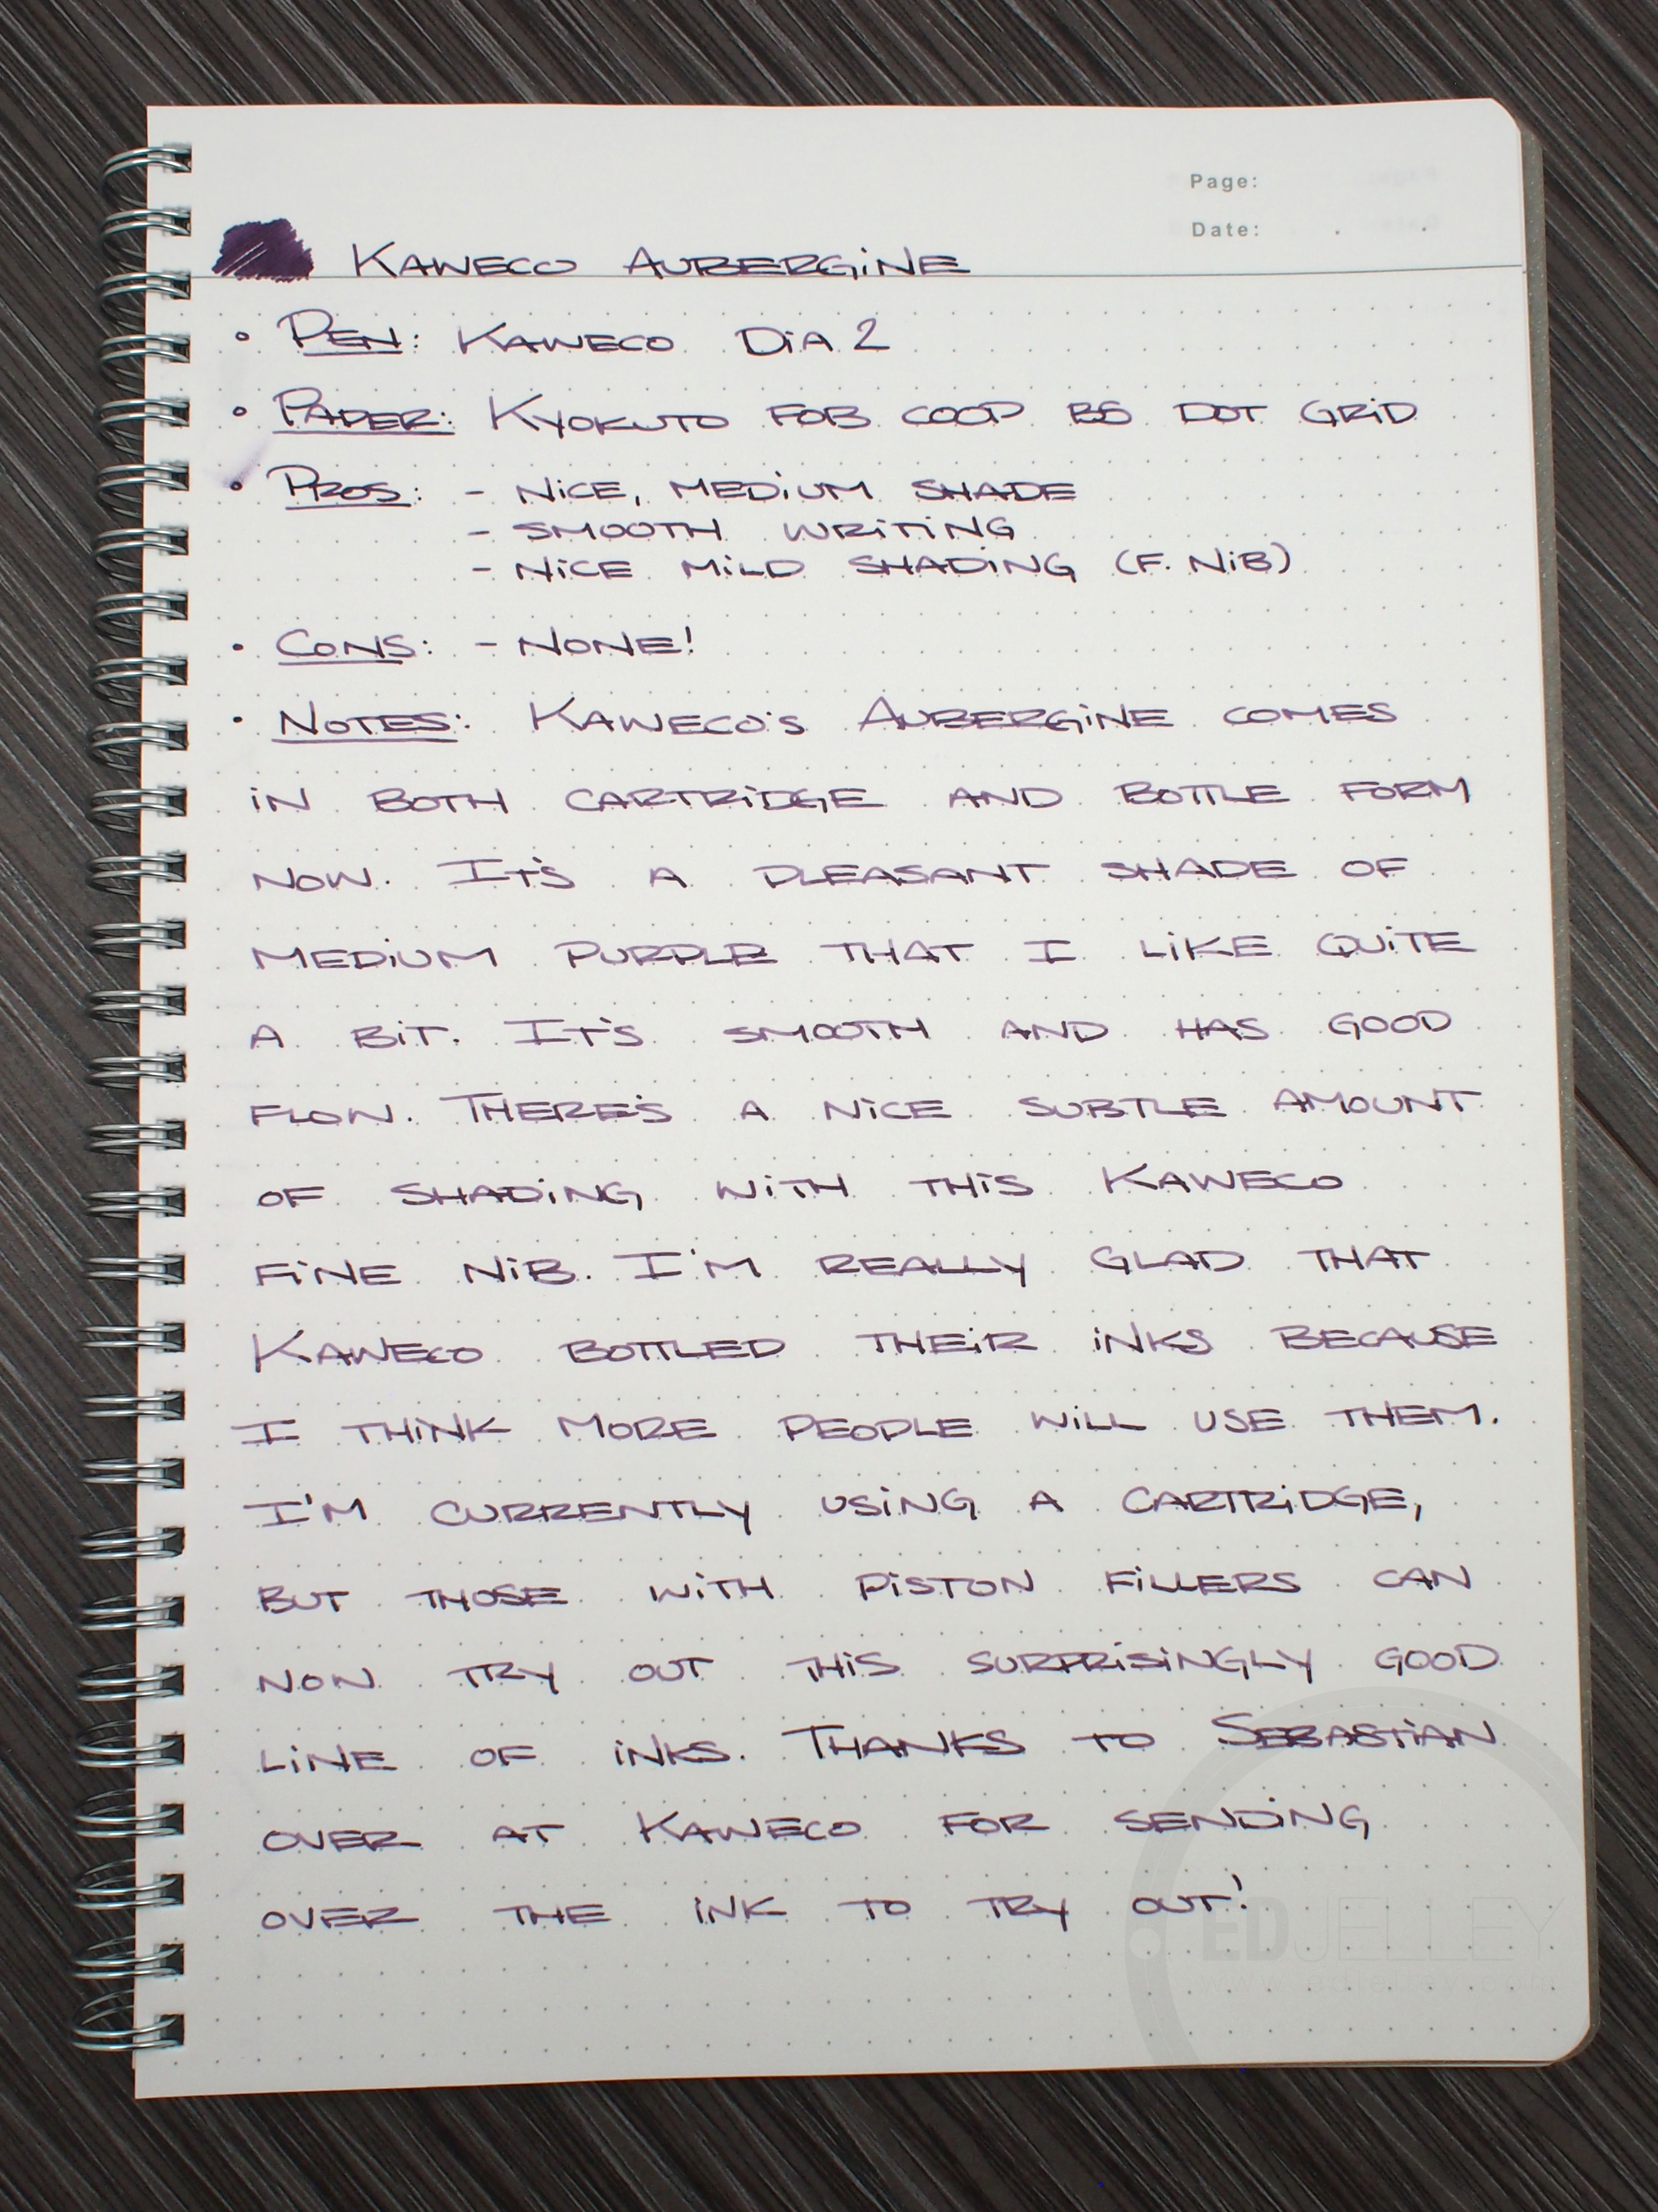 Page:
Date: . .
KAWECO AUBERGINE
• PEN: KAWECO DIA 2
• PAPER: KYOKUTO FOB COOP B5 DOT GRID
• PROS: - NICE, MEDIUM SHADE
- SMOOTH WRITING
- NICE MILD SHADING (F. NIB)
• CONS: - NONE!
• NOTES: KAWECO'S AUBERGINE COMES
IN BOTH CARTRIDGE AND BOTTLE FORM
NOW. IT'S A PLEASANT SHADE OF
MEDIUM PURPLE THAT I LIKE QUITE
A BIT. IT'S SMOOTH AND HAS GOOD
FLOW. THERE'S A NICE SUBTLE AMOUNT
OF SHADING WITH THIS KAWECO
FINE NIB. I'M REALLY GLAD THAT
KAWECO BOTTLED THEIR INKS BECAUSE
I THINK MORE PEOPLE WILL USE THEM.
I'M CURRENTLY USING A CARTRIDGE,
BUT THOSE WITH PISTON FILLERS CAN
NOW TRY OUT THIS SURPRISINGLY GOOD
LINE OF INKS. THANKS TO SEBASTIAN
OVER AT KAWECO FOR SENDING
OVER THE INK TO TRY OUT!
EDJELLEY
www.edjelley.com